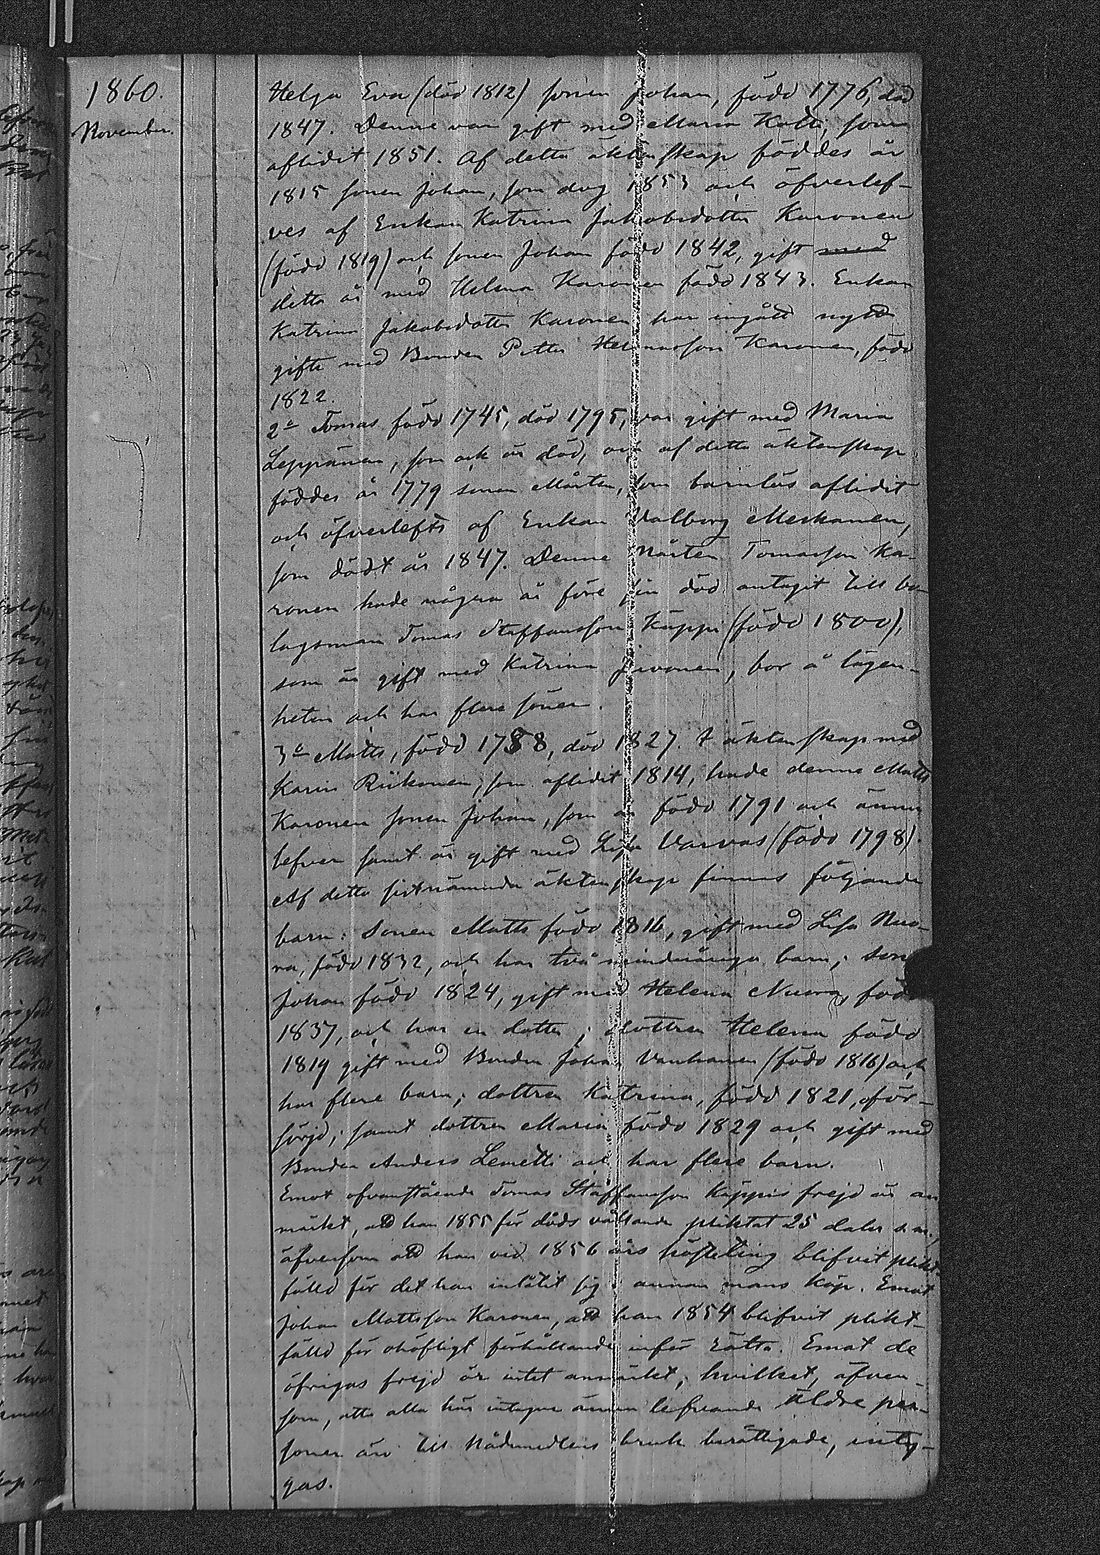 1860.
November.
Helga Eva (död 1812) sonen Johan, född 1776, död
1847. Denne var gift med Maria Kotti, som
aflidit 1851. Af detta äktenskap föddes år
1815 sonen Johan, som dog 1853 och öfverlef-
ves af Enkan Katrina Jakobsdotter Karonen
(född 1819) och sonen Johan född 1842, gift med
detta år med Helena Karonen född 1843. Enkan
Katrina Jakobsdotter Karonen har ingått nytt
gifte med Bonden Petter Karonen, född
1822.
2o Tomas född 1745, död 1795, var gift med Maria
Leppänen, som ock är död, och af detta äktenskap
föddes år 1779 sonen Mårten, som barnlös aflidit
och öfverlefts af Enkan Valborg Meskanen,
som dödt år 1847. Denne Mårten Tomasson Ka-
ronen hade några år före sin död antagit till bo-
lagsman Tomas Staffansson Käppi (född 1800),
som är gift med Katrina Jivonen, bor å lägen-
heten och har flere söner.
3o Matts, född 1758, död 1827. I äktenskap med
Karin Riikonen, som aflidit 1814, hade denne Matts
Karonen sonen Johan, som är född 1791 och ännu
lefver samt är gift med Lisa Varvas (född 1798).
Af detta sistnämnda äktenskap finnas följande
barn: Sonen Matts född 1816, gift med Lisa Nuo-
ra, född 1832, och har två minderåriga barn; sonen
Johan född 1824, gift med Helena Nuora, född
1837, och har en dotter; dottren Helena född
1819 gift med Bonden Johan Vanhanen (född 1816) och
har flere barn; dottren Katrina, född 1821, oför-
sörjd; samt dottren Maria född 1829 och gift med
Bonden Anders Lemetti och har flere barn.
Emot ofvanstående Tomas Staffansson Käppis frejd är an-
märkt, att han 1855 för döds vållande pliktat 25 daler s.m.
äfvensom att han vid 1856 års hösteting blifvit plikt-
fälld för det han inlåtit sig i annan mans köp. Emot
Johan Mattsson Karonen, att han 1854 blifvit plikt-
fälld för ohöfligt förhållande inför Rätta. Emot de
öfrigas frejd är intet anmärkt; hvilket, äfven-
som, att alla här intagne ännu lefvande äldre per-
soner äro till Nådemedlens bruk berättigade, inty-
gas.